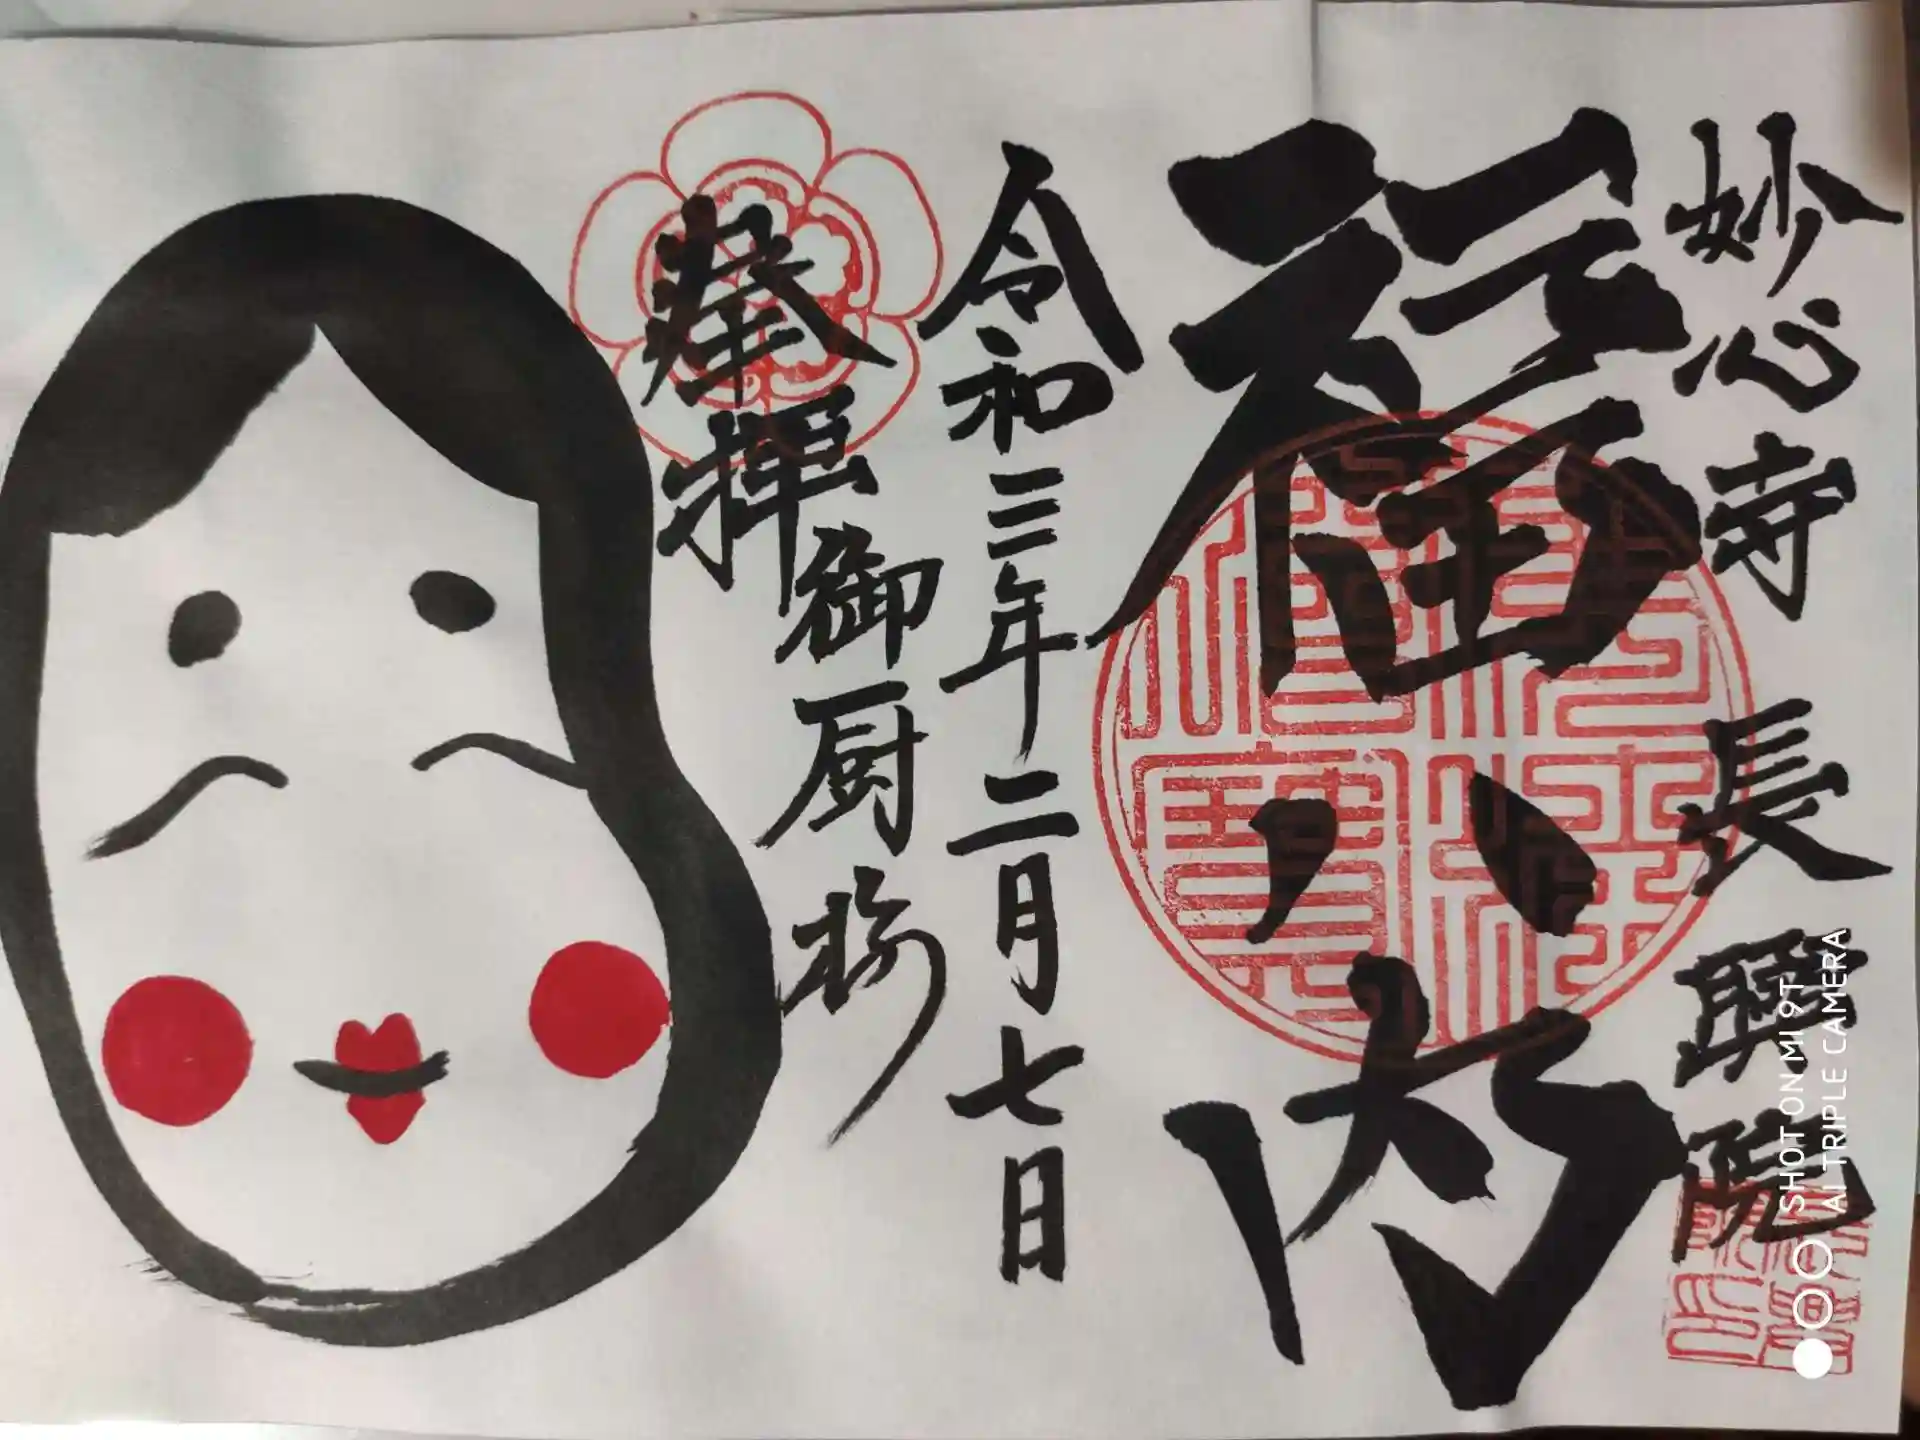 妙心寺 長興院
福ハ内
令和三年二月七日
奉拝
御厨様
SHOT ON MI 9T
AI TRIPLE CAMERA